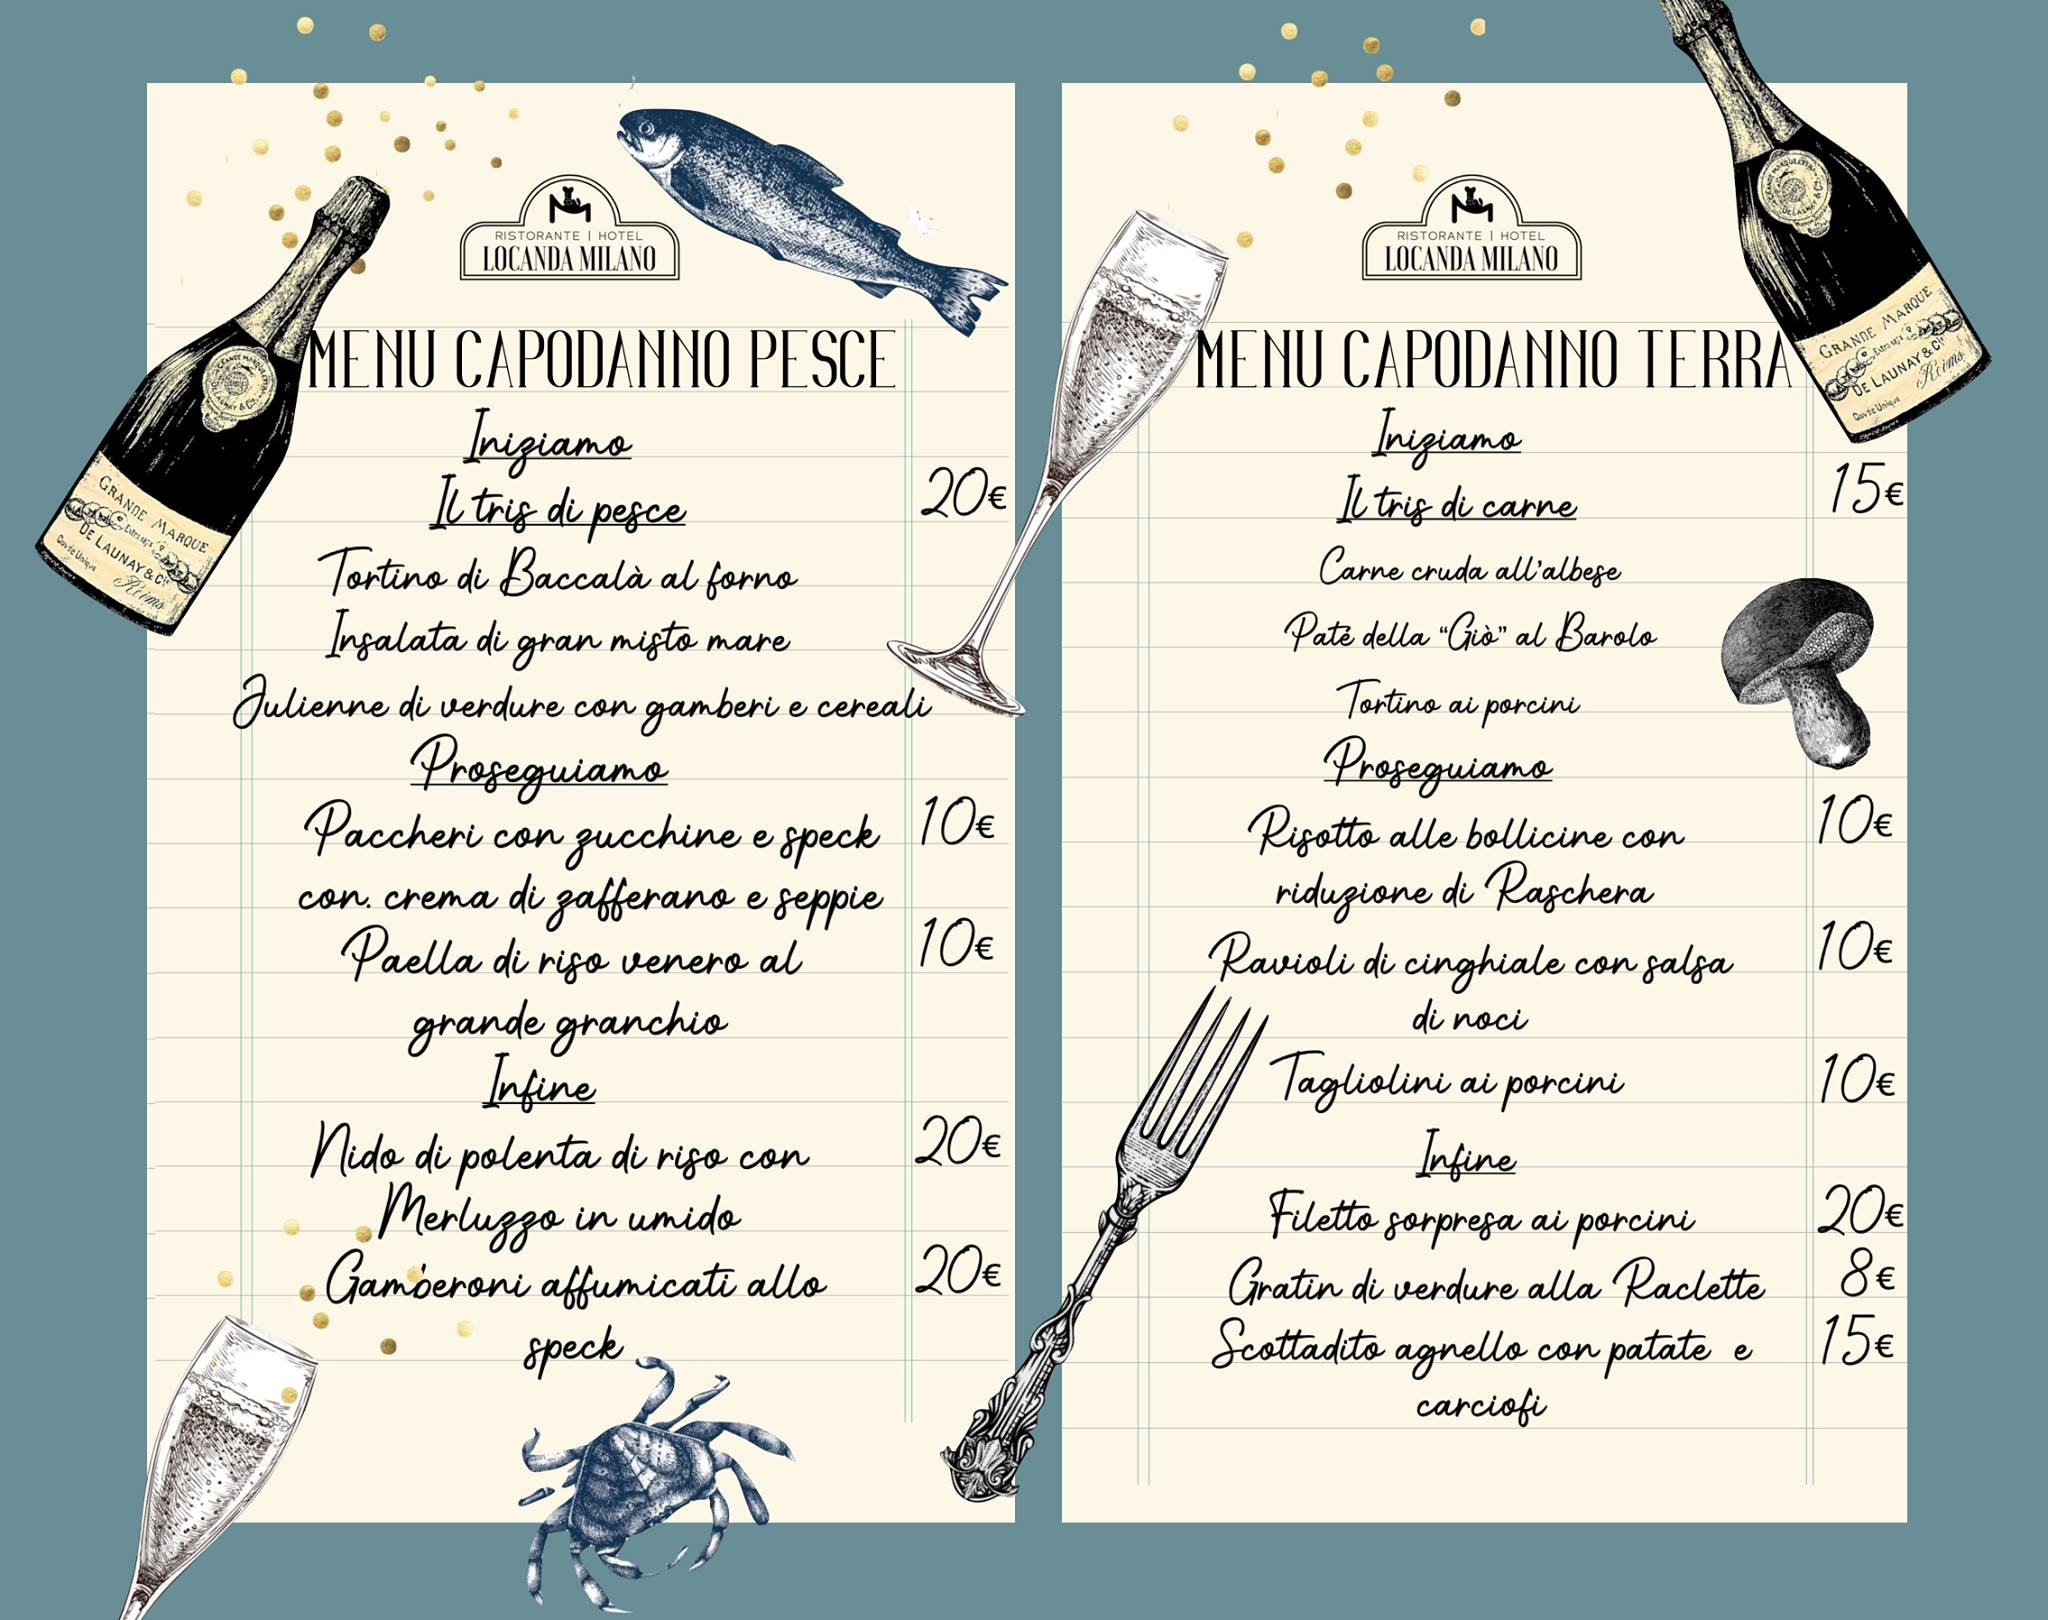 RISTORANTE | HOTEL
LOCANDA MILANO
MENU CAPODANNO PESCE
Iniziamo
Il tris di pesce 20€
Tortino di Baccalà al forno
Insalata di gran misto mare
Julienne di verdure con gamberi e cereali
Proseguiamo
Paccheri con zucchine e speck 10€
con. crema di zafferano e seppie
Paella di riso venero al 10€
grande granchio
Infine
Nido di polenta di riso con 20€
Merluzzo in umido
Gamberoni affumicati allo 20€
speck
GRANDE MARQUE
DE LAUNAY & Cie
Reims
Cuvée Unique
RISTORANTE | HOTEL
LOCANDA MILANO
MENU CAPODANNO TERRA
Iniziamo
Il tris di carne 15€
Carne cruda all'albese
Paté della “Giò” al Barolo
Tortino ai porcini
Proseguiamo
Risotto alle bollicine con 10€
riduzione di Raschera
Ravioli di cinghiale con salsa 10€
di noci
Tagliolini ai porcini 10€
Infine
Filetto sorpresa ai porcini 20€
Gratin di verdure alla Raclette 8€
Scottadito agnello con patate e 15€
carciofi
GRANDE MARQUE
DE LAUNAY & Cie
Reims
Cuvée Unique